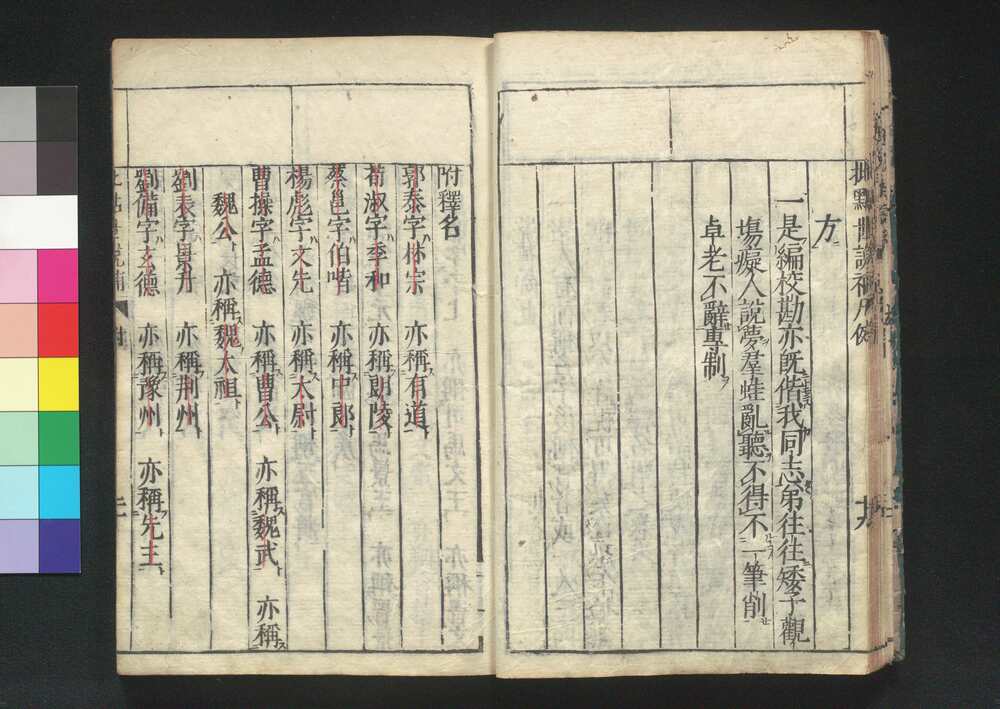 批點世說補凡例
九
方
一是編校勘亦既偕我同志弟往往矮子觀
場癡人說夢羣蛙亂聽不得不一筆削
卓老不辭專制
附釋名
郭泰字林宗 亦稱有道
荀淑字季和 亦稱朗陵
蔡邕字伯喈 亦稱中郎
楊彪字文先 亦稱太尉
曹操字孟德 亦稱曹公 亦稱魏武 亦稱
魏公 亦稱魏太祖
劉表字景升 亦稱荆州
劉備字玄德 亦稱豫州 亦稱先主